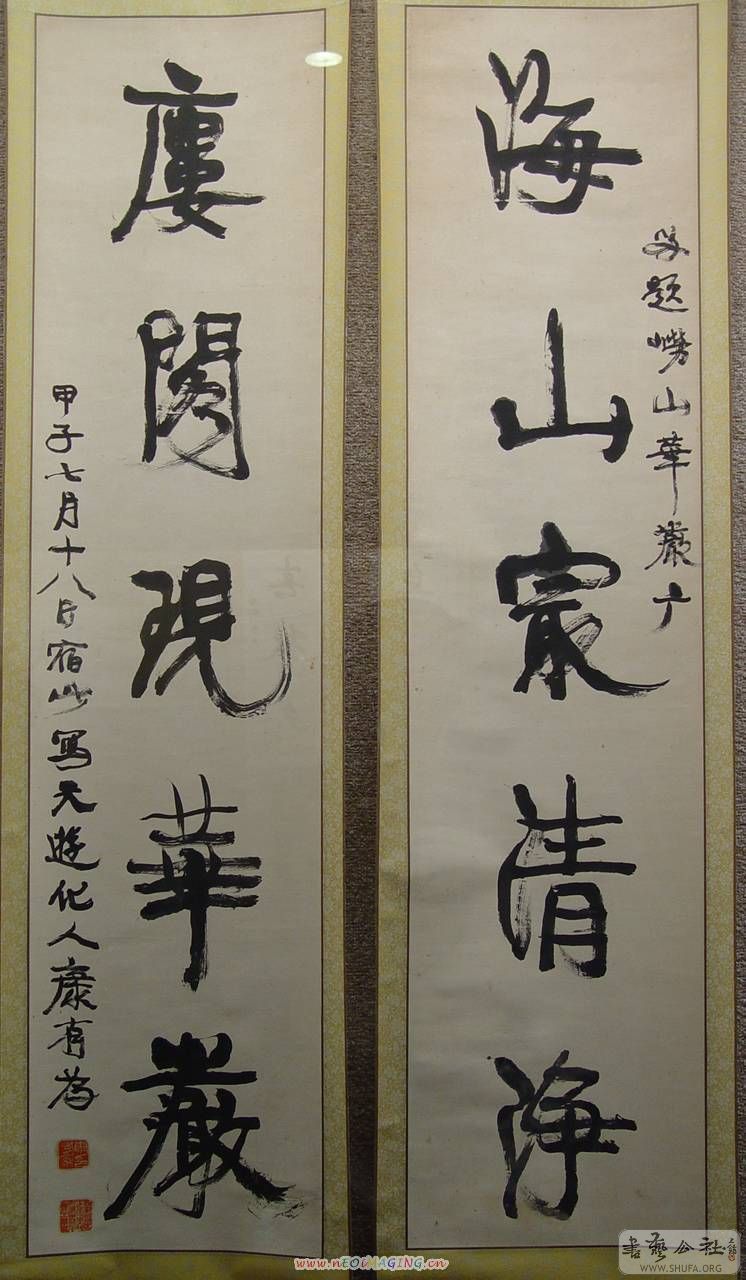 題嶗山華嚴广
海山最清淨
廔閣現華嚴
甲子七月十八日宿此寫天遊化人康有為
www.nEOiMAGING.cn
書藝公社
WWW.SHUFA.ORG